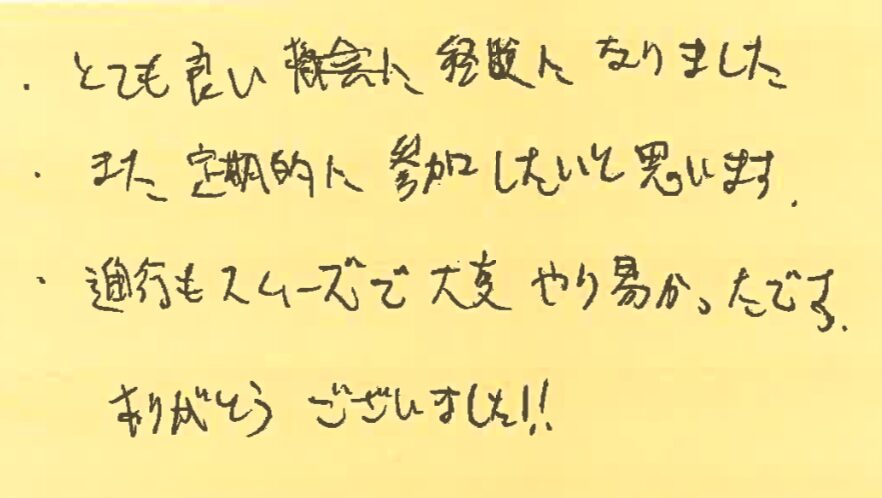 ・とても良い経験になりました
・また定期的に参加したいと思います.
・進行もスムーズで大変やり易かったです.
ありがとうございました!!